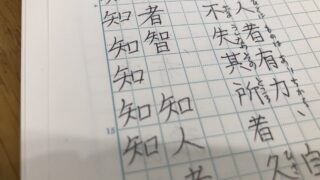 人者有力、自
不失其所者久
者智　知人者
知知知知知
15